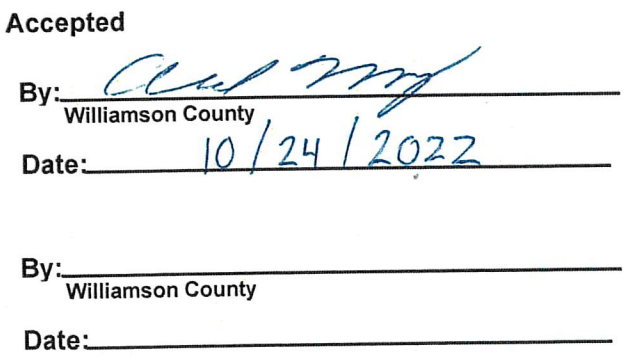 Accepted
By:
Williamson County
Date: 10/24/2022
By:
Williamson County
Date: